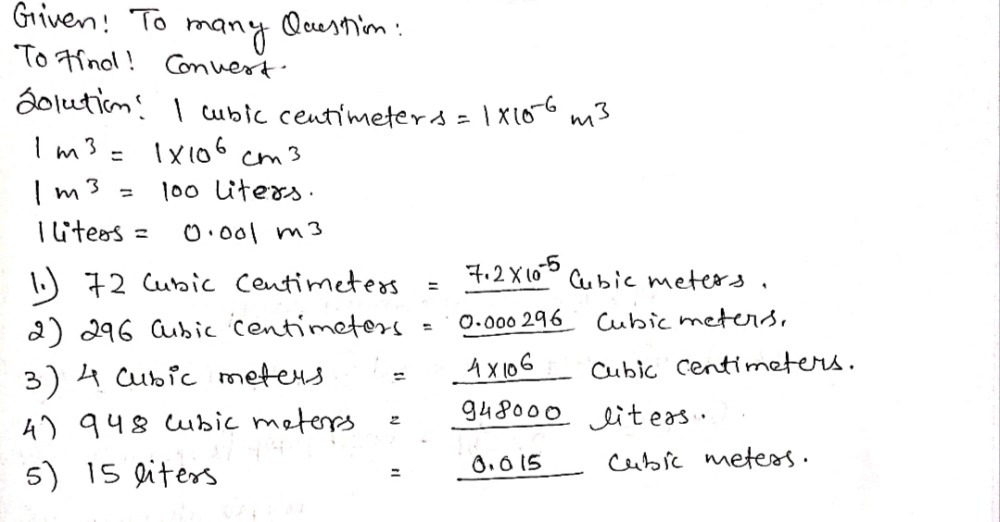 Given: To many Question:
To Find! Convert.
Solution: 1 cubic centimeters = 1×10⁻⁶ m³
1 m³ = 1×10⁶ cm³
1 m³ = 100 Liters.
1 liters = 0.001 m³
1.) 72 Cubic Centimeters = 7.2×10⁻⁵ Cubic meters.
2) 296 Cubic Centimeters = 0.000296 Cubic meters.
3) 4 Cubic meters = 4×10⁶ Cubic Centimeters.
4) 948 Cubic meters = 948000 liters.
5) 15 liters = 0.015 Cubic meters.